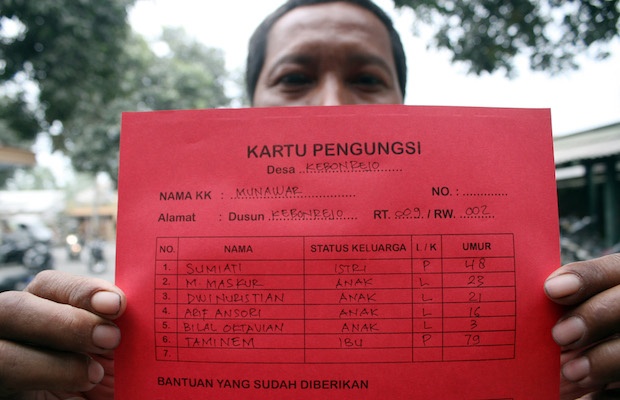 KARTU PENGUNGSI
Desa KEBONREJO
NAMA KK : MUNAWAR NO. :
Alamat : Dusun KEBONREJO RT. 009 / RW. 002
NO. NAMA STATUS KELUARGA L / K UMUR
1. SUMIATI ISTRI P 48
2. M. MASKUR ANAK L 23
3. DWI NURISTIAN ANAK L 21
4. ARIF ANSORI ANAK L 16
5. BILAL OKTAVIAN ANAK L 3
6. TAMINEM IBU P 79
7.
BANTUAN YANG SUDAH DIBERIKAN